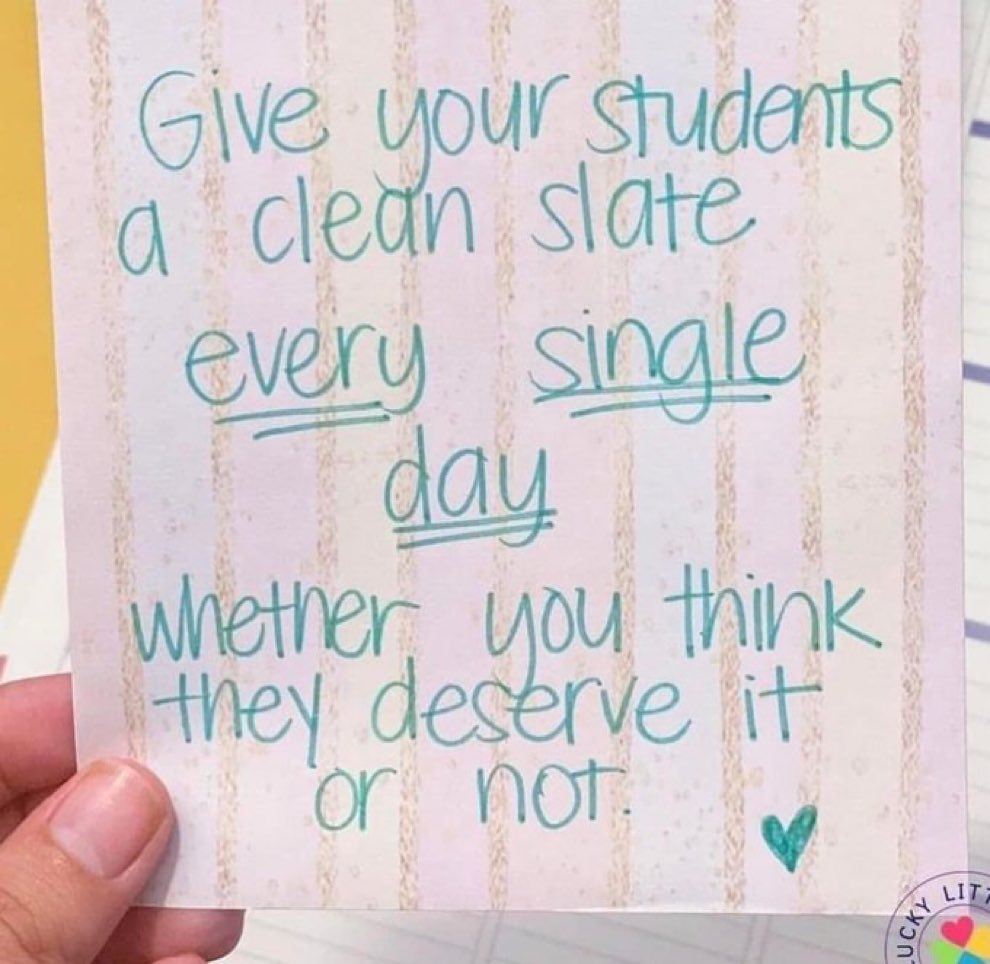 Give your students
a clean slate
every single
day
whether you think
they deserve it
or not.